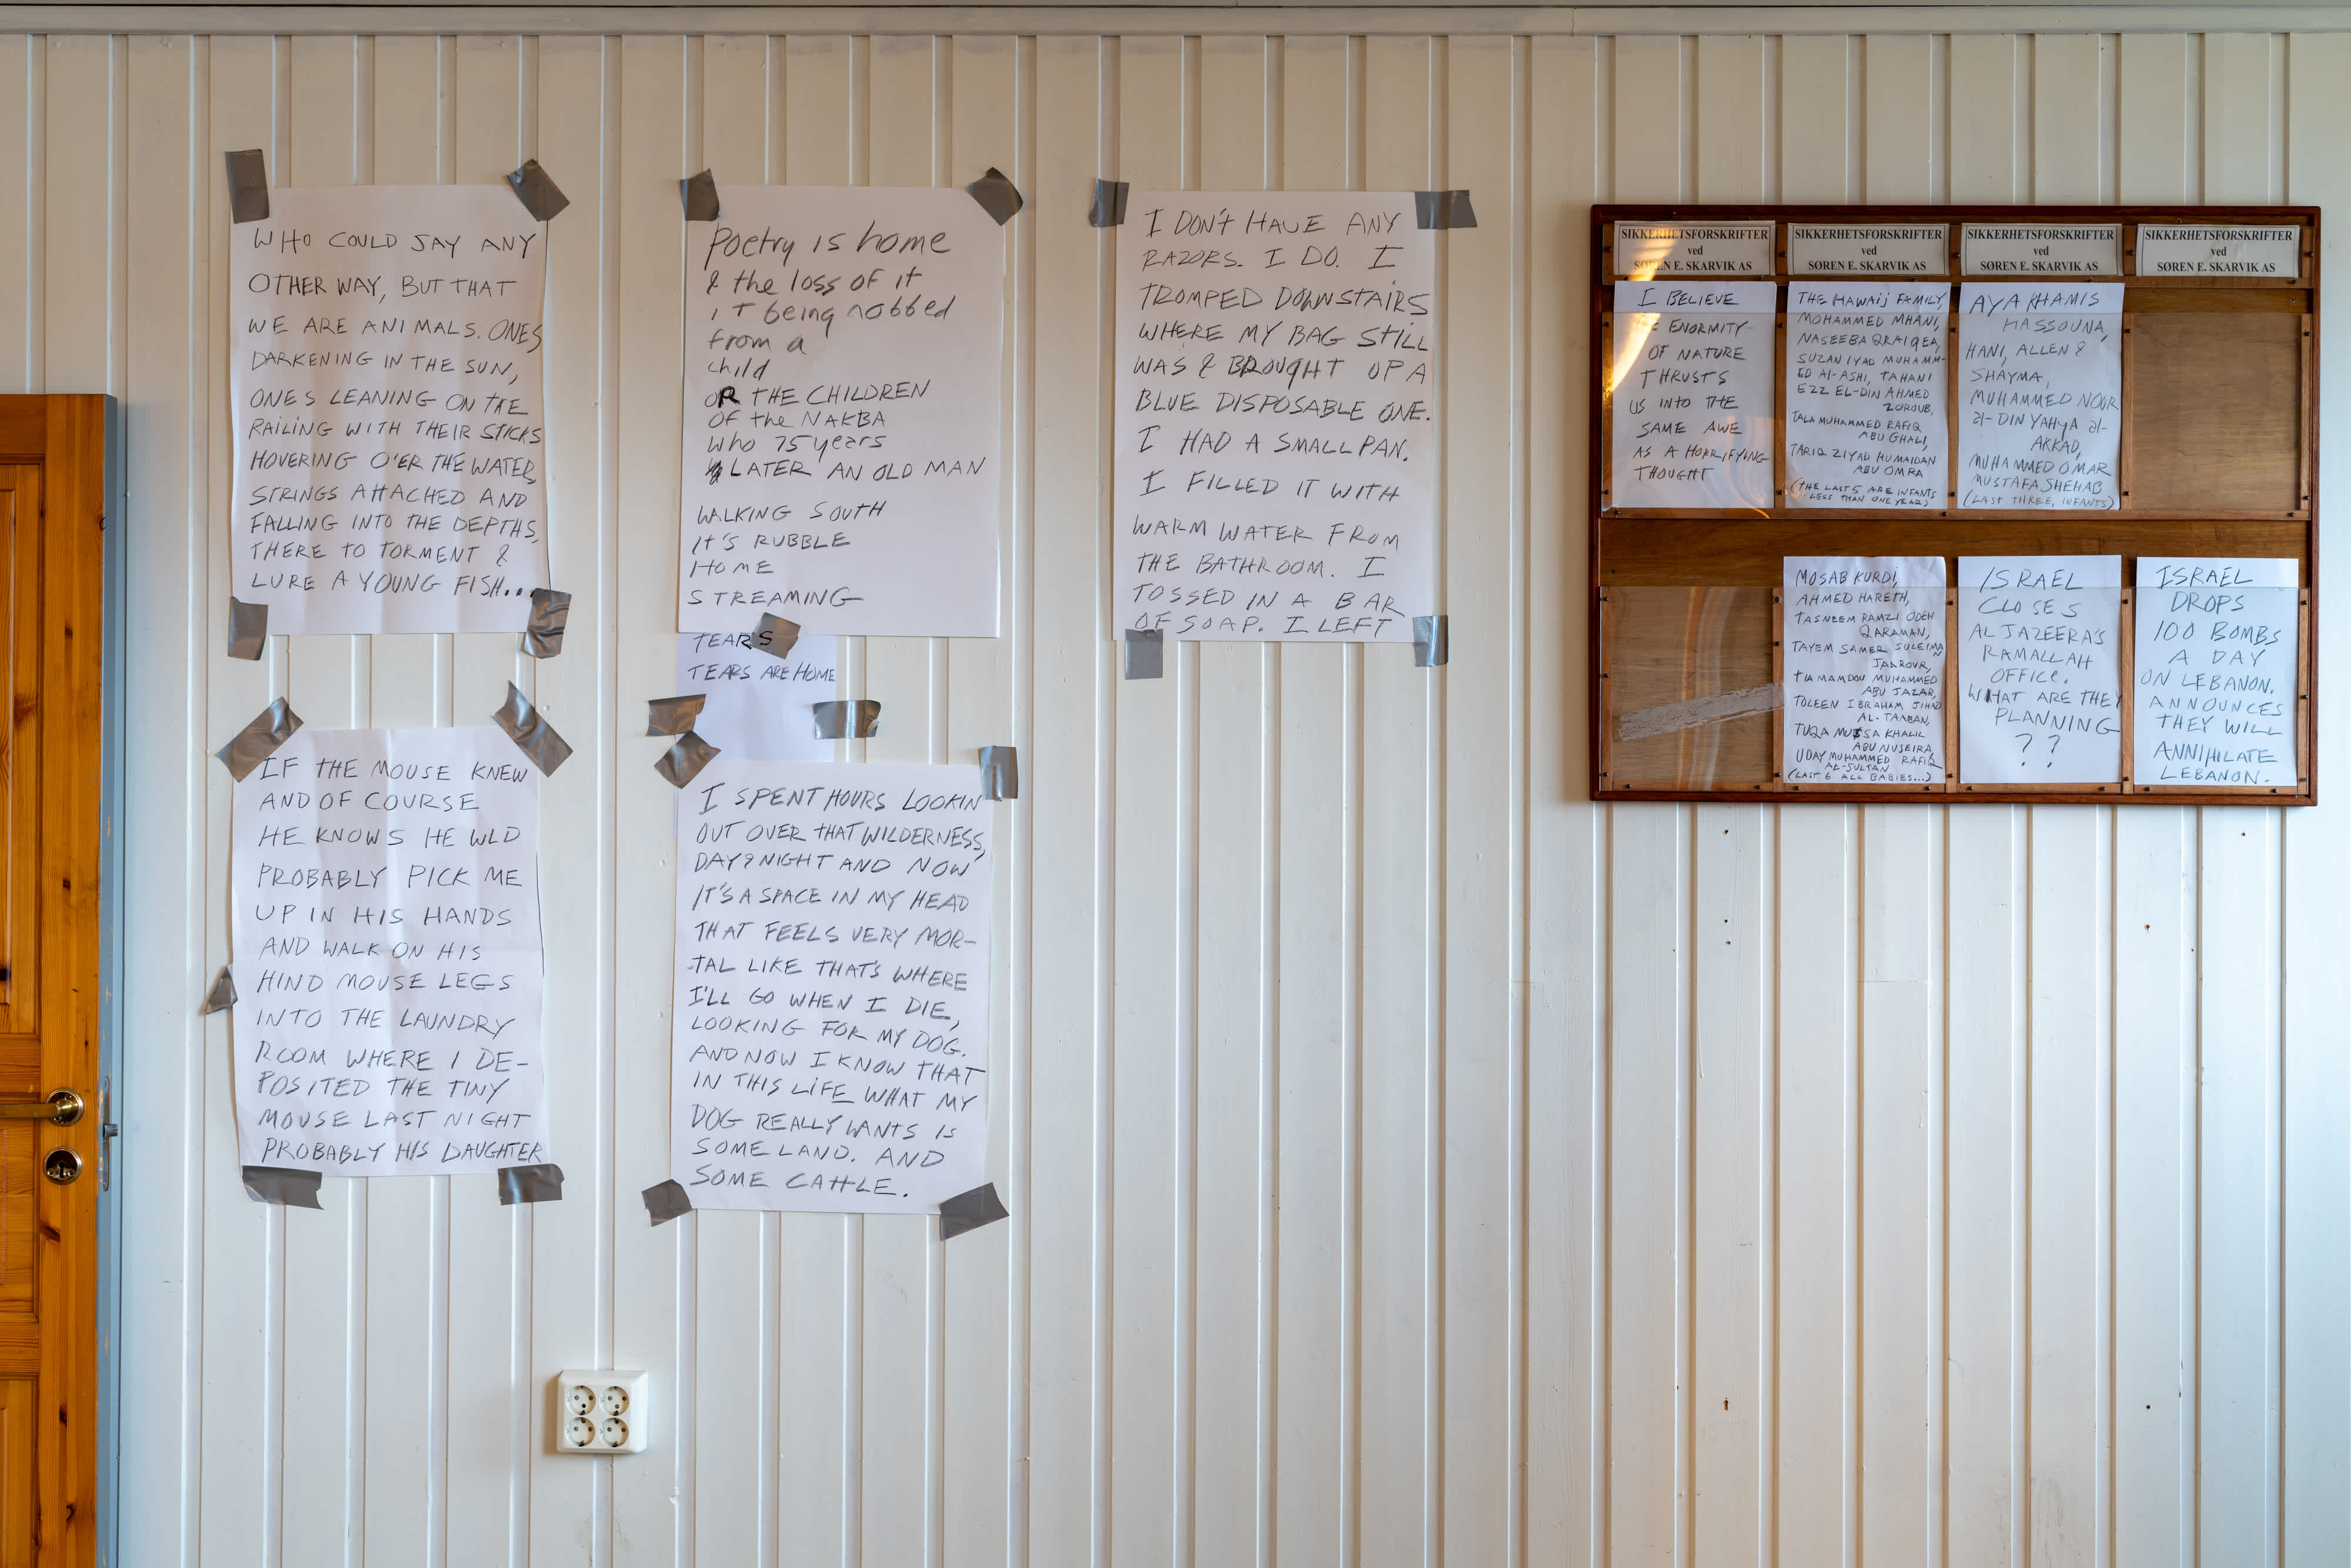 WHO COULD SAY ANY
OTHER WAY, BUT THAT
WE ARE ANIMALS. ONES
DARKENING IN THE SUN,
ONES LEANING ON THE
RAILING WITH THEIR STICKS
HOVERING O'ER THE WATER,
STRINGS ATTACHED AND
FALLING INTO THE DEPTHS,
THERE TO TORMENT &
LURE A YOUNG FISH...
IF THE MOUSE KNEW
AND OF COURSE
HE KNOWS HE WLD
PROBABLY PICK ME
UP IN HIS HANDS
AND WALK ON HIS
HIND MOUSE LEGS
INTO THE LAUNDRY
ROOM WHERE I DE-
POSITED THE TINY
MOUSE LAST NIGHT
PROBABLY HIS DAUGHTER
Poetry is home
& the loss of it
it being robbed
from a
child
OR THE CHILDREN
OF the NAKBA
who 75 years
LATER AN OLD MAN
WALKING SOUTH
IT'S RUBBLE
HOME
STREAMING
TEARS
TEARS ARE HOME
I SPENT HOURS LOOKIN
OUT OVER THAT WILDERNESS,
DAY & NIGHT AND NOW
IT'S A SPACE IN MY HEAD
THAT FEELS VERY MOR-
TAL LIKE THAT'S WHERE
I'LL GO WHEN I DIE,
LOOKING FOR MY DOG.
AND NOW I KNOW THAT
IN THIS LIFE WHAT MY
DOG REALLY WANTS IS
SOME LAND. AND
SOME CATTLE.
I DON'T HAVE ANY
RAZORS. I DO. I
TROMPED DOWNSTAIRS
WHERE MY BAG STILL
WAS & BROUGHT UP A
BLUE DISPOSABLE ONE.
I HAD A SMALL PAN.
I FILLED IT WITH
WARM WATER FROM
THE BATHROOM. I
TOSSED IN A BAR
OF SOAP. I LEFT
SIKKERHETSFORSKRIFTER
ved
SØREN E. SKARVIK AS
I BELIEVE
ENORMITY
OF NATURE
THRUSTS
US INTO THE
SAME AWE
AS A HORRIFYING
THOUGHT
SIKKERHETSFORSKRIFTER
ved
SØREN E. SKARVIK AS
THE HAWAIJ FAMILY,
MOHAMMED MHANI,
NASEEBA QRAIQEA,
SUZAN IYAD MUHAMM-
ED Al-ASHI, TAHANI
EZZ EL-DIN AHMED
ZOROUB,
TALA MUHAMMED RAFIQ
ABU GHALI,
TARIQ ZIYAD HUMAIDAN
ABU OMRA
(THE LAST 5 ARE INFANTS
LESS THAN ONE YEAR)
SIKKERHETSFORSKRIFTER
ved
SØREN E. SKARVIK AS
AYA KHAMIS
HASSOUNA,
HANI, ALLEN &
SHAYMA,
MUHAMMED NOUR
al-DIN YAHYA al-
AKKAD,
MUHAMMED OMAR
MUSTAFA SHEHAB
(LAST THREE, INFANTS)
SIKKERHETSFORSKRIFTER
ved
SØREN E. SKARVIK AS
MOSAB KURDI,
AHMED HARETH,
TASNEEM RAMZI ODEH
QARAMAN,
TAYEM SAMER SULEIMAN
JAAROUR,
TIA MAMDOU MUHAMMED
ABU JAZAR,
TOLEEN IBRAHAM JIHAD
AL-TAABAN,
TUQA MUSSA KHALIL
ABU NUSEIRA,
UDAY MUHAMMED RAFIQ
AL-SULTAN
(LAST 6 ALL BABIES...)
ISRAEL
CLOSES
AL JAZEERA'S
RAMALLAH
OFFICE.
WHAT ARE THEY
PLANNING
??
ISRAEL
DROPS
100 BOMBS
A DAY
ON LEBANON.
ANNOUNCES
THEY WILL
ANNIHILATE
LEBANON.